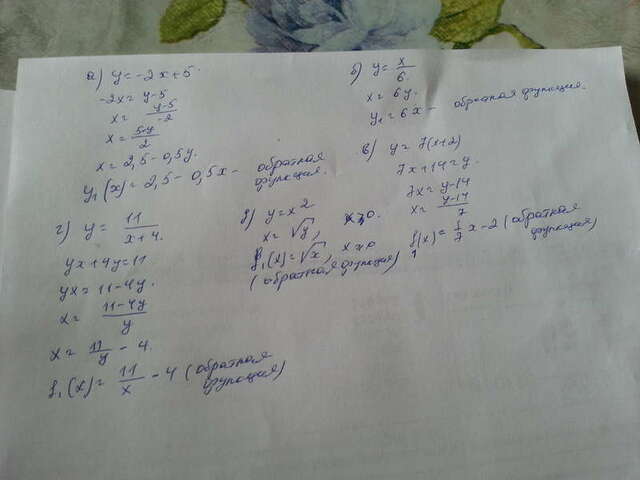 а) y = -2x + 5.
-2x = y - 5
x = (y-5)/(-2)
x = (5-y)/2
x = 2,5 - 0,5y.
y₁(x) = 2,5 - 0,5x - обратная функция.
б) y = x/6.
x = 6y.
y₁ = 6x - обратная функция.
в) y = 7(x+2)
7x + 14 = y.
7x = y - 14
x = (y-14)/7
f₁(x) = 1/7 x - 2 (обратная функция)
г) y = 11/(x+4).
yx + 4y = 11
yx = 11 - 4y.
x = (11-4y)/y
x = 11/y - 4.
f₁(x) = 11/x - 4 (обратная функция)
д) y = x², x ≥ 0.
x = √y,
f₁(x) = √x, x ≥ 0
(обратная функция)